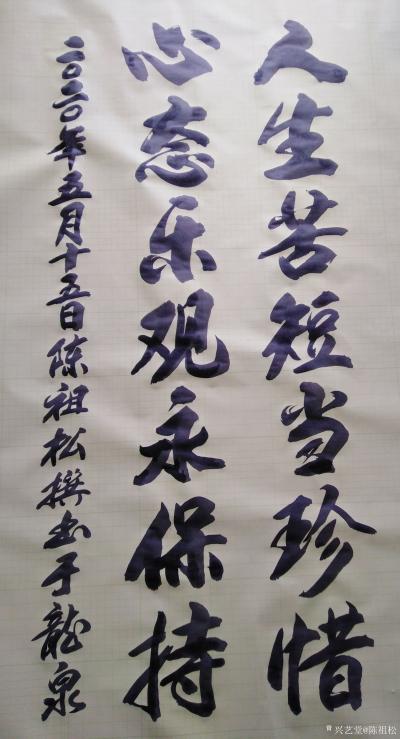 人生苦短当珍惜
心态乐观永保持
二〇二〇年五月十五日陈祖松撰书于龍泉
兴艺堂@陈祖松